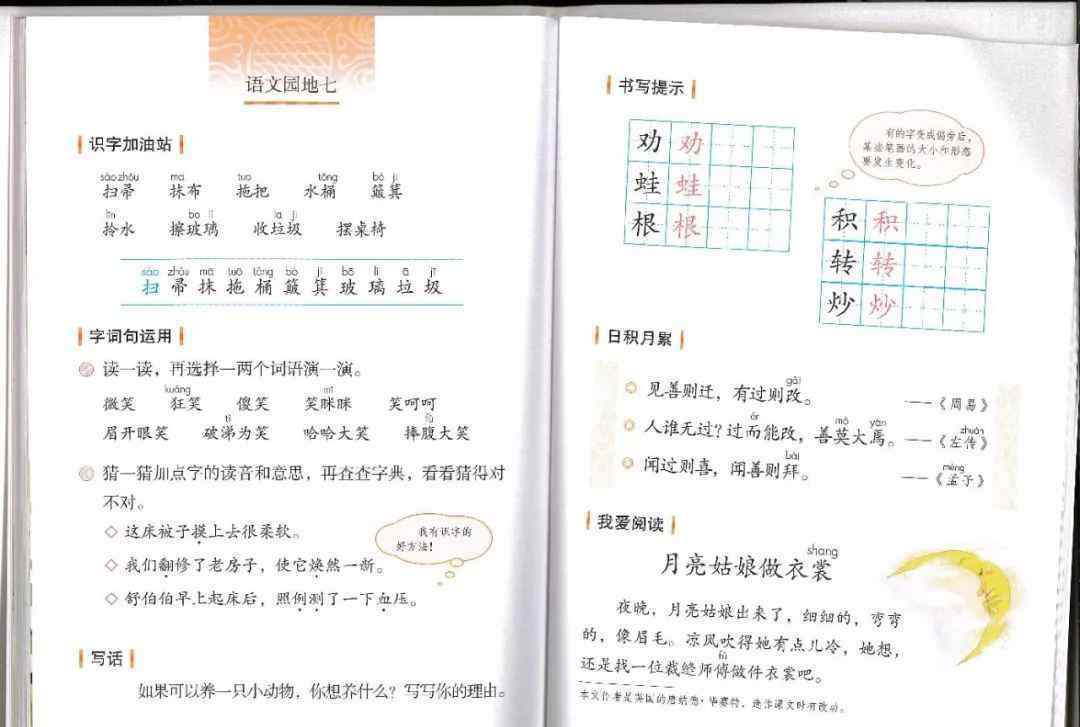 语文园地七
识字加油站
sào zhou mā tuō tǒng bò ji
扫帚 抹布 拖把 水桶 簸箕
līn bō li lā jī
拎水 擦玻璃 收垃圾 摆桌椅
sào zhǒu mā tuō tǒng bò jī bō lí lā jī
扫 帚 抹 拖 桶 簸 箕 玻 璃 垃 圾
字词句运用
读一读，再选择一两个词语演一演。
kuáng mī
微笑 狂笑 傻笑 笑眯眯 笑呵呵
tì fù
眉开眼笑 破涕为笑 哈哈大笑 捧腹大笑
猜一猜加点字的读音和意思，再查查字典，看看猜得对
不对。
◇ 这床被子摸上去很柔软。
◇ 我们翻修了老房子，使它焕然一新。
◇ 舒伯伯早上起床后，照例测了一下血压。
我有识字的
好方法！
写话
如果可以养一只小动物，你想养什么？写写你的理由。
书写提示
劝 劝
蛙 蛙
根 根
有的字变成偏旁后，
某些笔画的大小和形态
要发生变化。
积 积
转 转
炒 炒
日积月累
gǎi
见善则迁，有过则改。 ——《周易》
ér mò yān zhuàn
人谁无过？过而能改，善莫大焉。 ——《左传》
bài mèng
闻过则喜，闻善则拜。 ——《孟子》
我爱阅读
shang
月亮姑娘做衣裳
夜晚，月亮姑娘出来了，细细的，弯弯
的，像眉毛。凉风吹得她有点儿冷，她想，
fu
还是找一位裁缝师傅做件衣裳吧。
本文作者是英国的恩结蒂·毕赛特，选作课文时有改动。